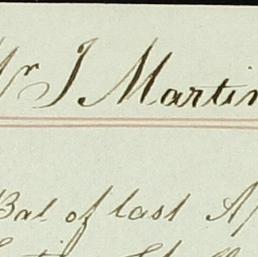 Mr J Martin
Bal of last A